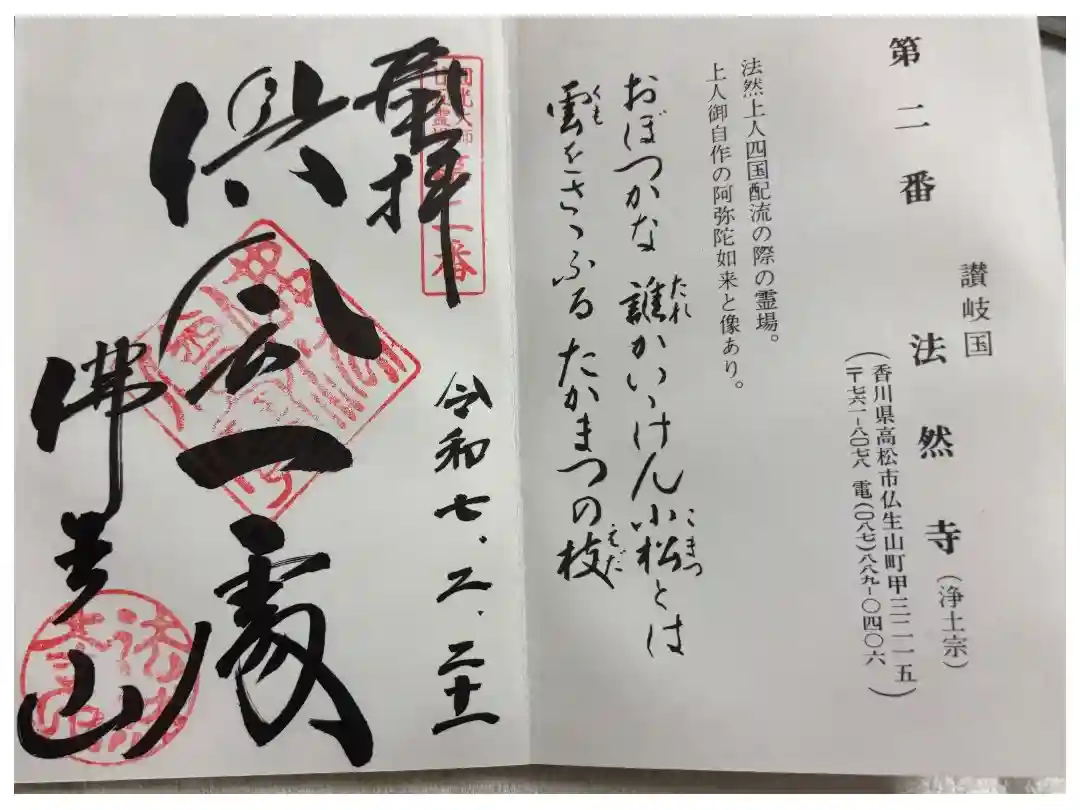 第二番
讃岐国
法然寺（浄土宗）
（香川県高松市仏生山町甲三二一五
〒七六一－八〇七八 電（〇八七）八八九－〇四〇六）
法然上人四国配流の際の霊場。
上人御自作の阿弥陀如来と像あり。
おぼつかな 誰かいゝけん小松とは
たれ
こまつ
雲をさゝふる たかまつの枝
くも
えだ
奉拝
第二番
令和七、二、二十一
倶会一處
佛生山